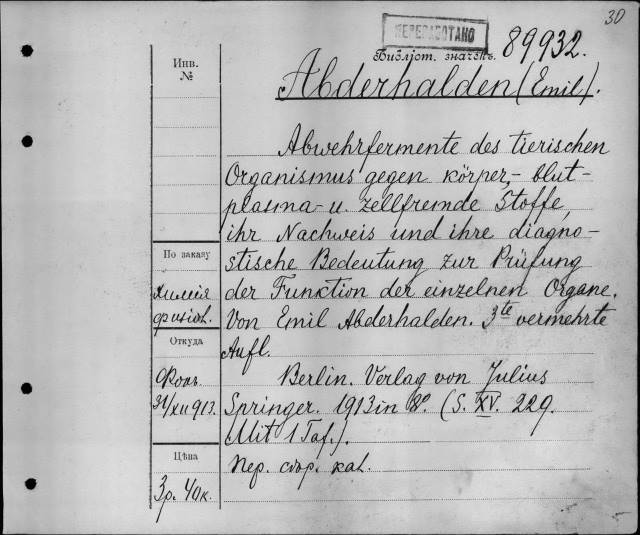 30
ПЕРЕРАБОТАНО
Библіот. значекъ. 89932.
Инв.
№
Abderhalden (Emil).
Abwehrfermente des tierischen
Organismus gegen körper,- blut-
plasma- u. zellfremde Stoffe,
ihr Nachweis und ihre diagno-
stische Bedeutung zur Prüfung
der Funktion der einzelnen Organe.
Von Emil Abderhalden. 3te vermehrte
Aufl.
Berlin. Verlag von Julius
Springer. 1913 in 8º. (S. XV. 229.
(Mit 1 Taf.).
Пер.
По заказу
Химія
физіол.
Откуда
31/XII 1913.
Цѣна
3р. 40к.